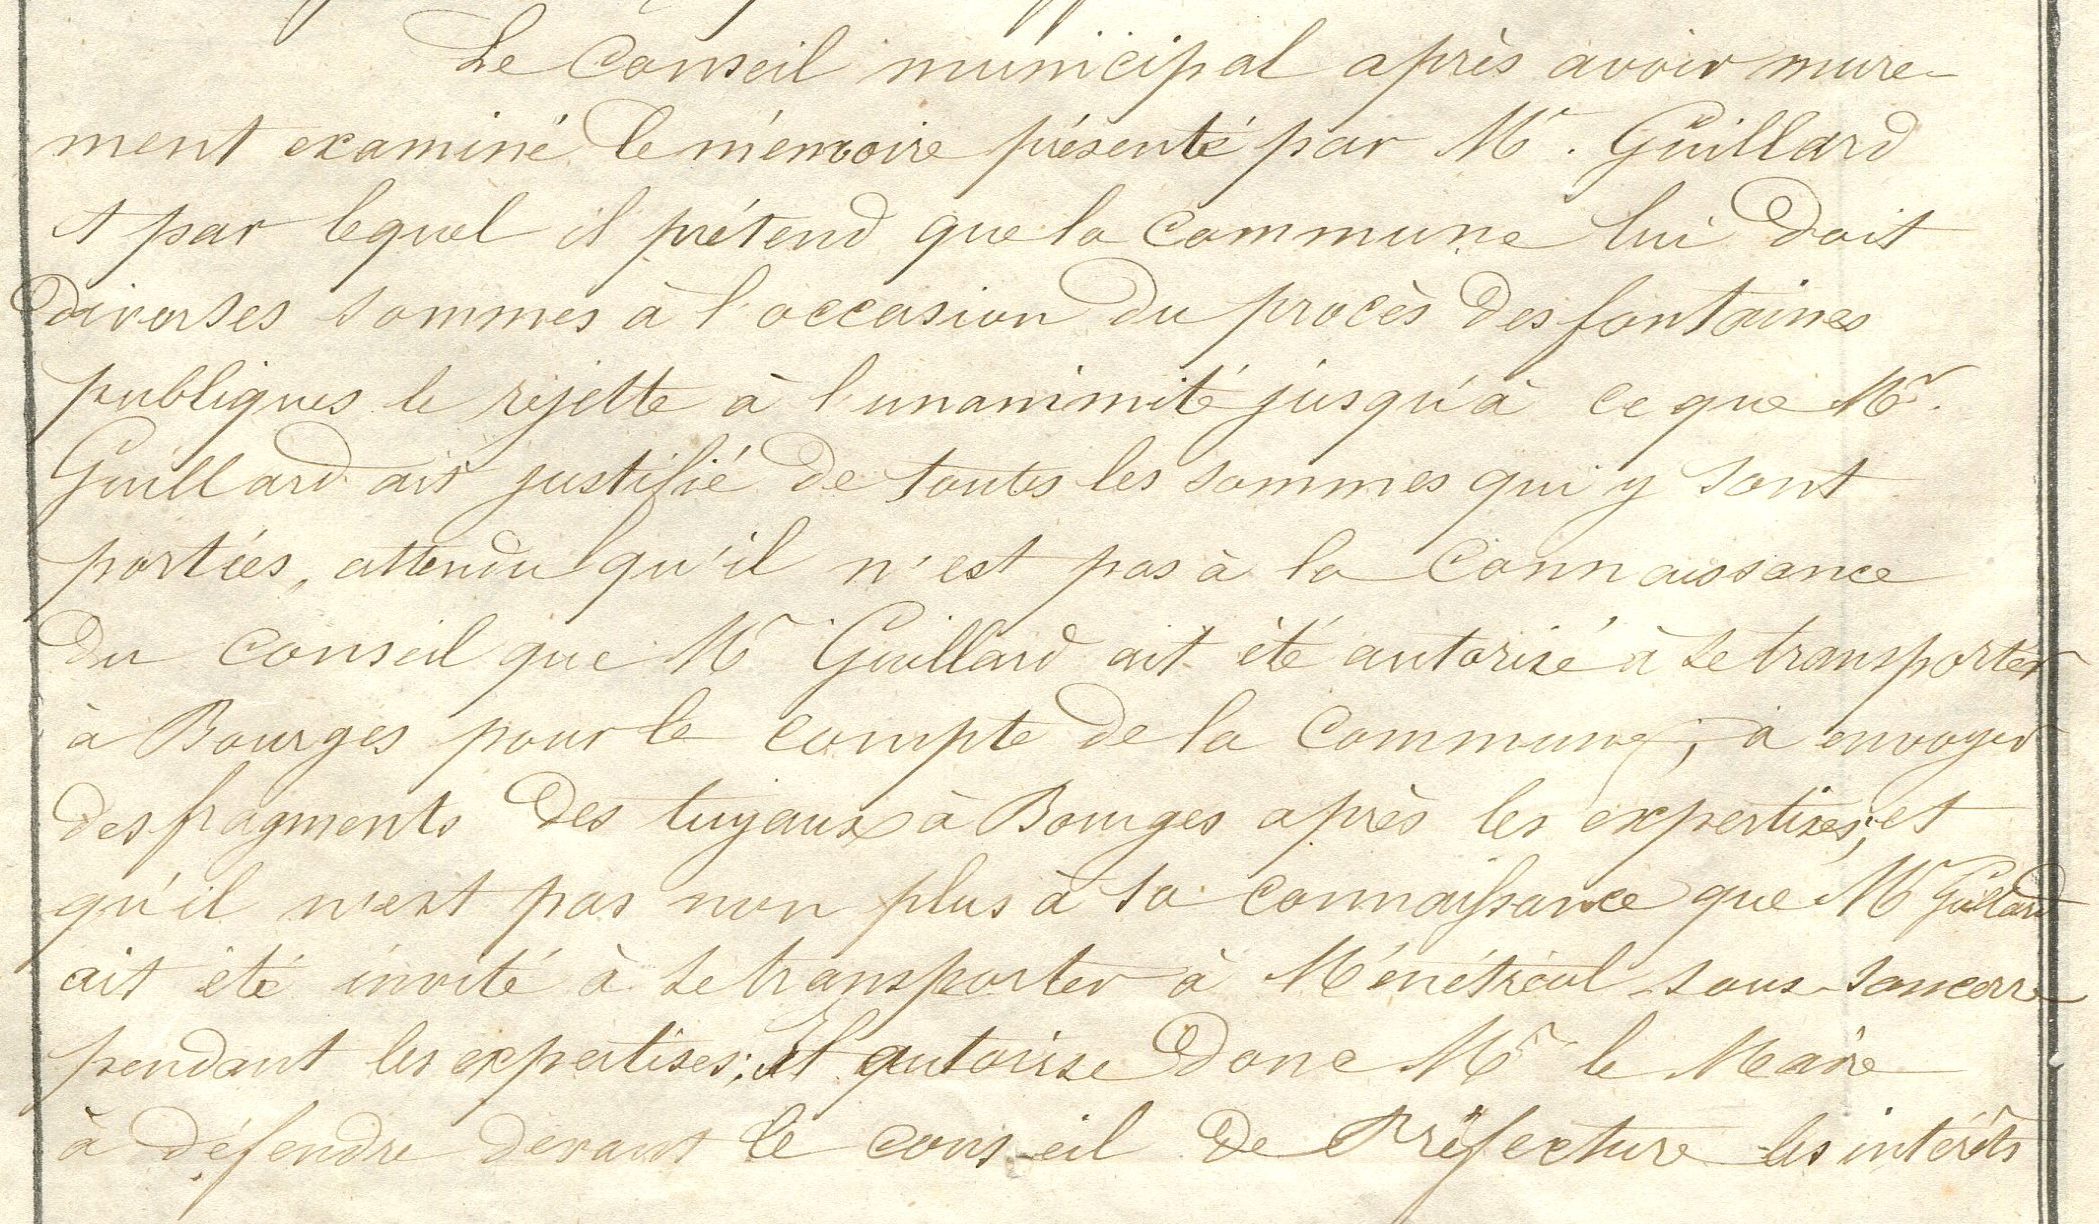 Le Conseil municipal après avoir mure-
ment examiné le mémoire présenté par Mr. Guillard
et par lequel il prétend que la Commune lui doit
diverses sommes à l'occasion du procès des fontaines
publiques le rejette à l'unanimité jusqu'à ce que Mr.
Guillard ait justifié de toutes les sommes qui y sont
portées, attendu qu'il n'est pas à la Connaissance
du conseil que Mr Guillard ait été autorisé à se transporter
à Bourges pour le compte de la Commune, à envoyer
des fragments des tuyaux à Bourges après les expertises; et
qu'il n'est pas non plus à sa connaissance que Mr Guillard
ait été invité à se transporter à Ménétréol-sous-Sancerre
pendant les expertises; Il autorise donc Mr le Maire
à défendre devant le conseil de Préfecture les intérêts